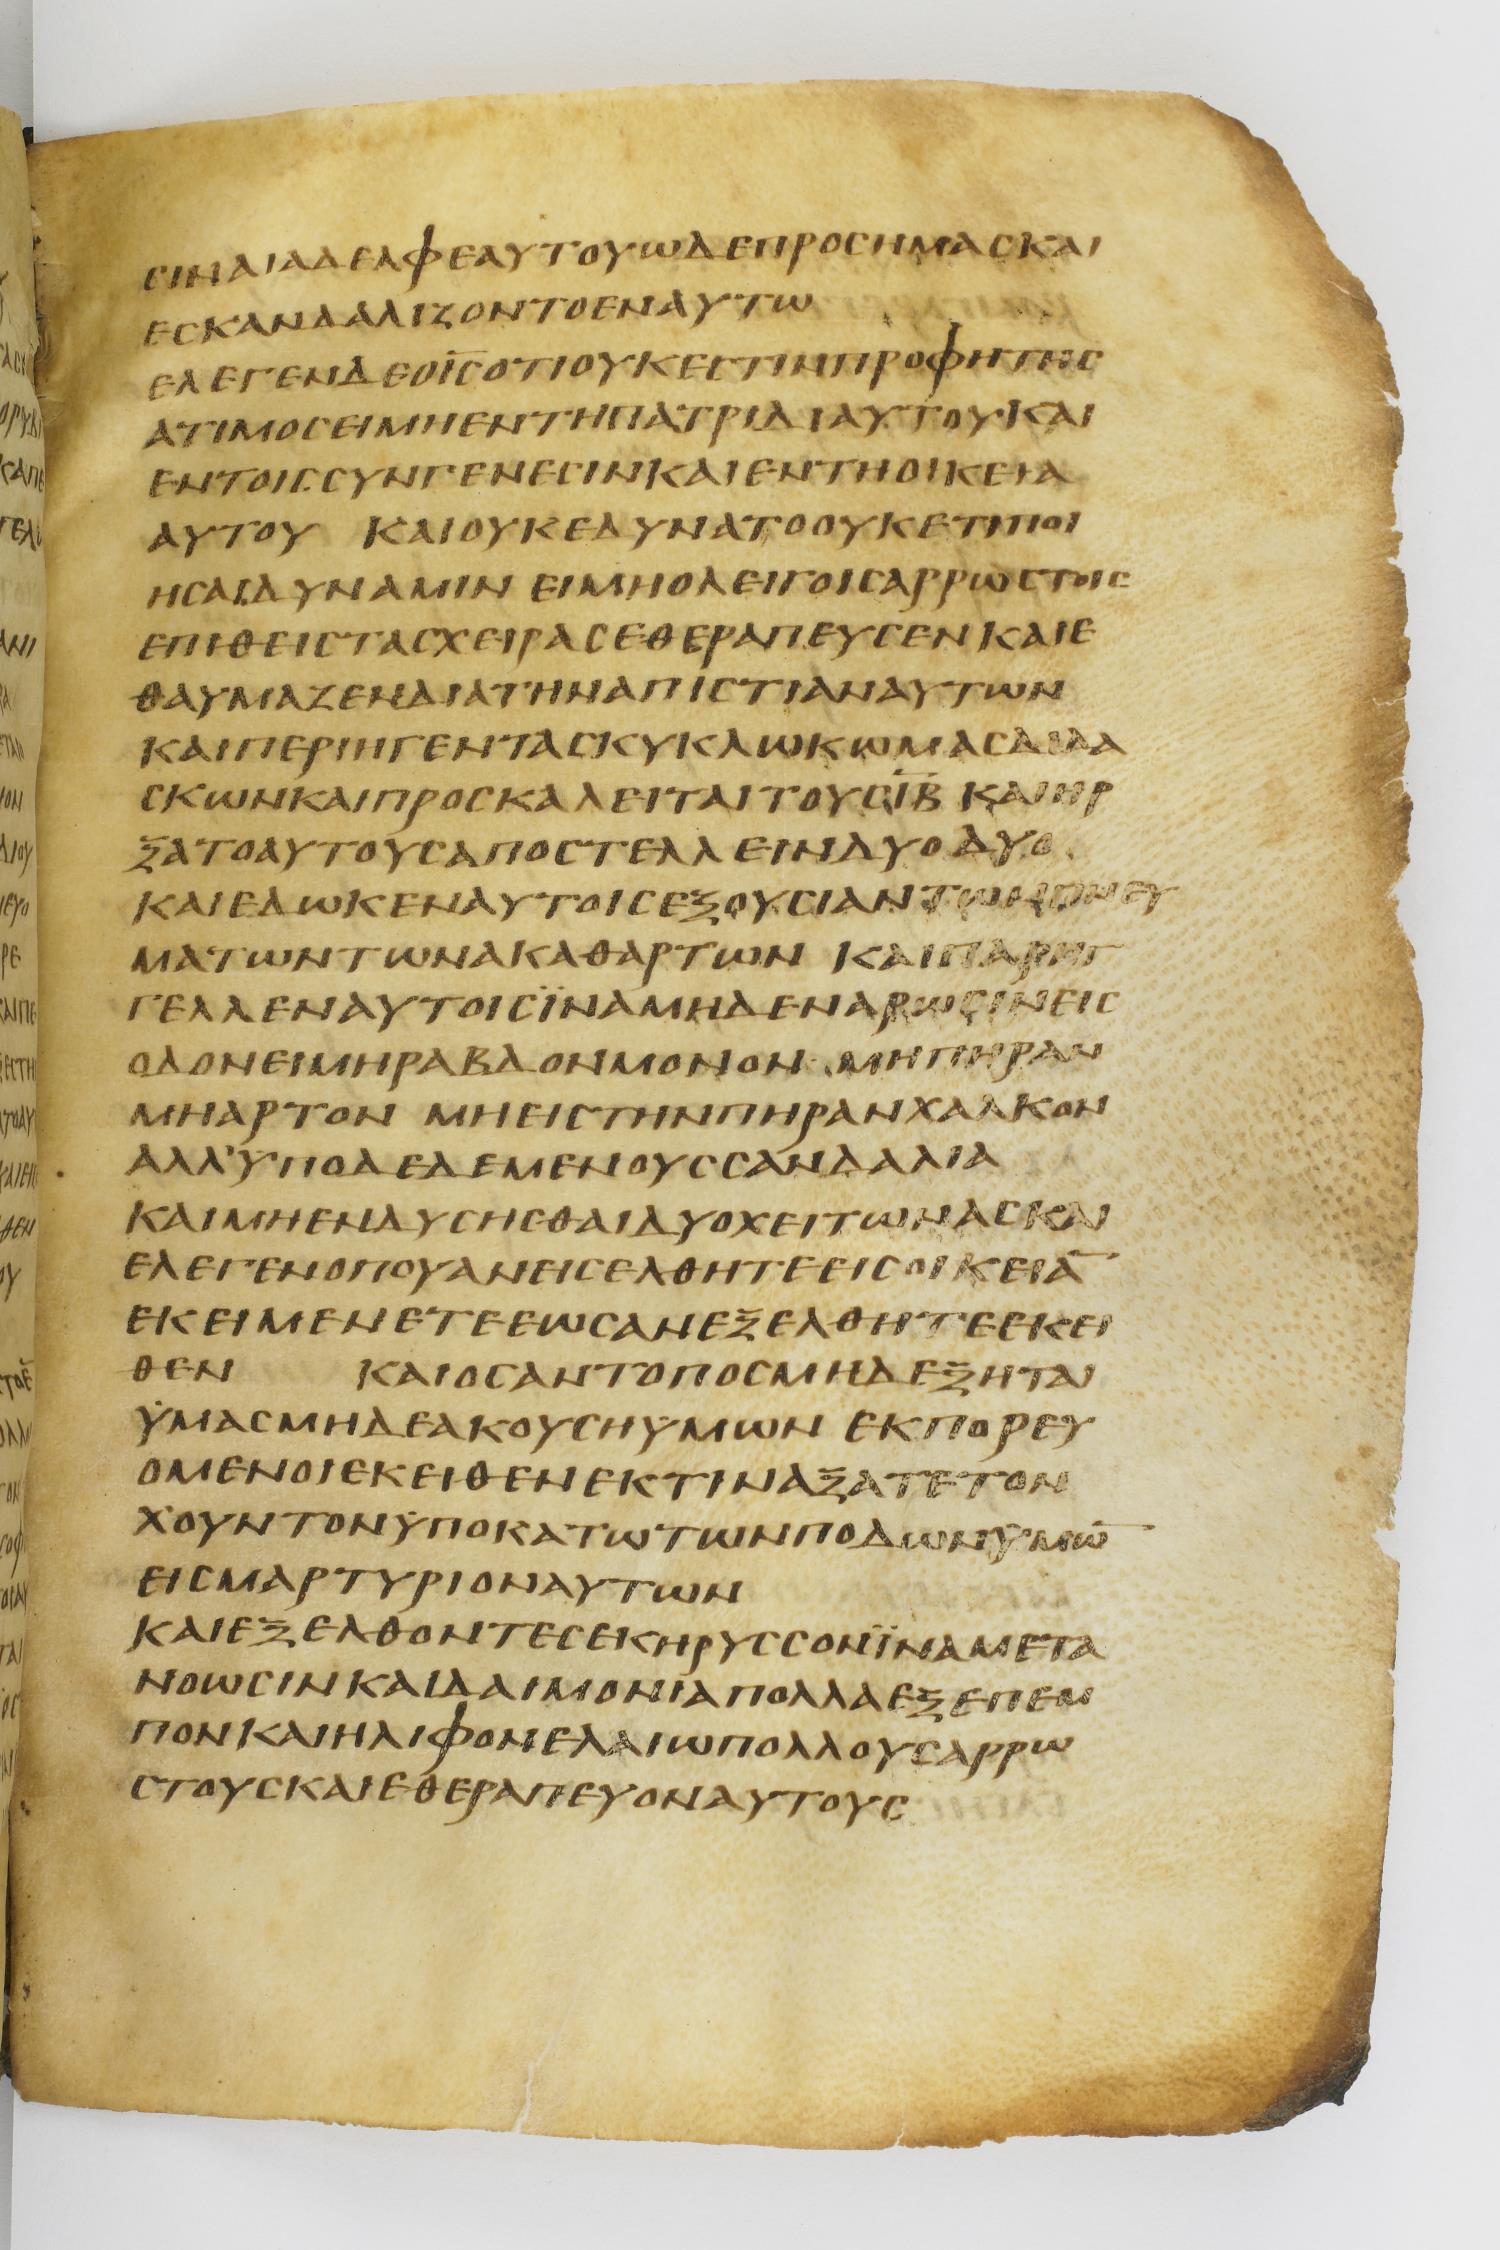 ΣΙΝΑΙΑΔΕΛΦΕΑΥΤΟΥΩΔΕΠΡΟΣΗΜΑΣΚΑΙ
ΕΣΚΑΝΔΑΛΙΖΟΝΤΟΕΝΑΥΤΩ
ΕΛΕΓΕΝΔΕΟΙ̅Σ̅ΟΤΙΟΥΚΕΣΤΙΝΠΡΟΦΗΤΗΣ
ΑΤΙΜΟΣΕΙΜΗΕΝΤΗΠΑΤΡΙΔΙΑΥΤΟΥΚΑΙ
ΕΝΤΟΙΣΣΥΝΓΕΝΕΣΙΝΚΑΙΕΝΤΗΟΙΚΕΙΑ
ΑΥΤΟΥ ΚΑΙΟΥΚΕΔΥΝΑΤΟΟΥΚΕΤΙΠΟΙ
ΗΣΑΙΔΥΝΑΜΙΝ ΕΙΜΗΟΛΕΙΓΟΙΣΑΡΡΩΣΤΟΙΣ
ΕΠΙΘΕΙΣΤΑΣΧΕΙΡΑΣΕΘΕΡΑΠΕΥΣΕΝΚΑΙΕ
ΘΑΥΜΑΖΕΝΔΙΑΤΗΝΑΠΙΣΤΙΑΝΑΥΤΩΝ
ΚΑΙΠΕΡΙΗΓΕΝΤΑΣΚΥΚΛΩΚΩΜΑΣΔΙΔΑ
ΣΚΩΝΚΑΙΠΡΟΣΚΑΛΕΙΤΑΙΤΟΥΣΙ̅Β̅ ΚΑΙΗΡ
ΞΑΤΟΑΥΤΟΥΣΑΠΟΣΤΕΛΛΕΙΝΔΥΟΔΥΟ
ΚΑΙΕΔΩΚΕΝΑΥΤΟΙΣΕΞΟΥΣΙΑΝΤΩΝΠΝΕΥ
ΜΑΤΩΝΤΩΝΑΚΑΘΑΡΤΩΝ ΚΑΙΠΑΡΗΓ
ΓΕΛΛΕΝΑΥΤΟΙΣΪΝΑΜΗΔΕΝΑΡΩΣΙΝΕΙΣ
ΟΔΟΝΕΙΜΗΡΑΒΔΟΝΜΟΝΟΝ ΜΗΠΗΡΑΝ
ΜΗΑΡΤΟΝ ΜΗΕΙΣΤΗΝΠΗΡΑΝΧΑΛΚΟΝ
ΑΛΛ'ΥΠΟΔΕΔΕΜΕΝΟΥΣΣΑΝΔΑΛΙΑ
ΚΑΙΜΗΕΝΔΥΣΗΣΘΑΙΔΥΟΧΕΙΤΩΝΑΣΚΑΙ
ΕΛΕΓΕΝΟΠΟΥΑΝΕΙΣΕΛΘΗΤΕΕΙΣΟΙΚΕΙΑ̅
ΕΚΕΙΜΕΝΕΤΕΕΩΣΑΝΕΞΕΛΘΗΤΕΕΚΕΙ
ΘΕΝ ΚΑΙΟΣΑΝΤΟΠΟΣΜΗΔΕΞΗΤΑΙ
ΫΜΑΣΜΗΔΕΑΚΟΥΣΗΫΜΩΝ ΕΚΠΟΡΕΥ
ΟΜΕΝΟΙΕΚΕΙΘΕΝΕΚΤΙΝΑΞΑΤΕΤΟΝ
ΧΟΥΝΤΟΝΫΠΟΚΑΤΩΤΩΝΠΟΔΩΝΫΜΩ̅
ΕΙΣΜΑΡΤΥΡΙΟΝΑΥΤΩΝ
ΚΑΙΕΞΕΛΘΟΝΤΕΣΕΚΗΡΥΣΣΟΝΪΝΑΜΕΤΑ
ΝΟΩΣΙΝΚΑΙΔΑΙΜΟΝΙΑΠΟΛΛΑΕΞΕΠΕΜ
ΠΟΝΚΑΙΗΛΙΦΟΝΕΛΑΙΩΠΟΛΛΟΥΣΑΡΡΩ
ΣΤΟΥΣΚΑΙΕΘΕΡΑΠΕΥΟΝΑΥΤΟΥΣ